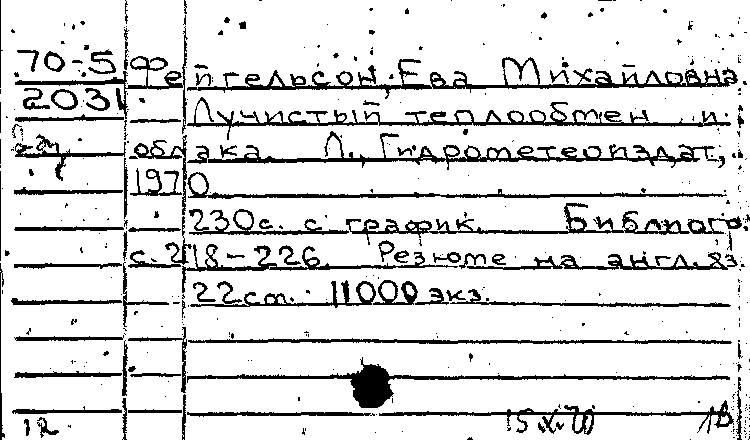 70-5 Фейгельсон, Ева Михайловна.
2031
Лучистый теплообмен и
облака. Л., Гидрометеоиздат,
1970.
230с. с график. Библиогр.
с. 218-226. Резюме на англ. яз.
22см. 11000 экз.
12 15.X.70 1В